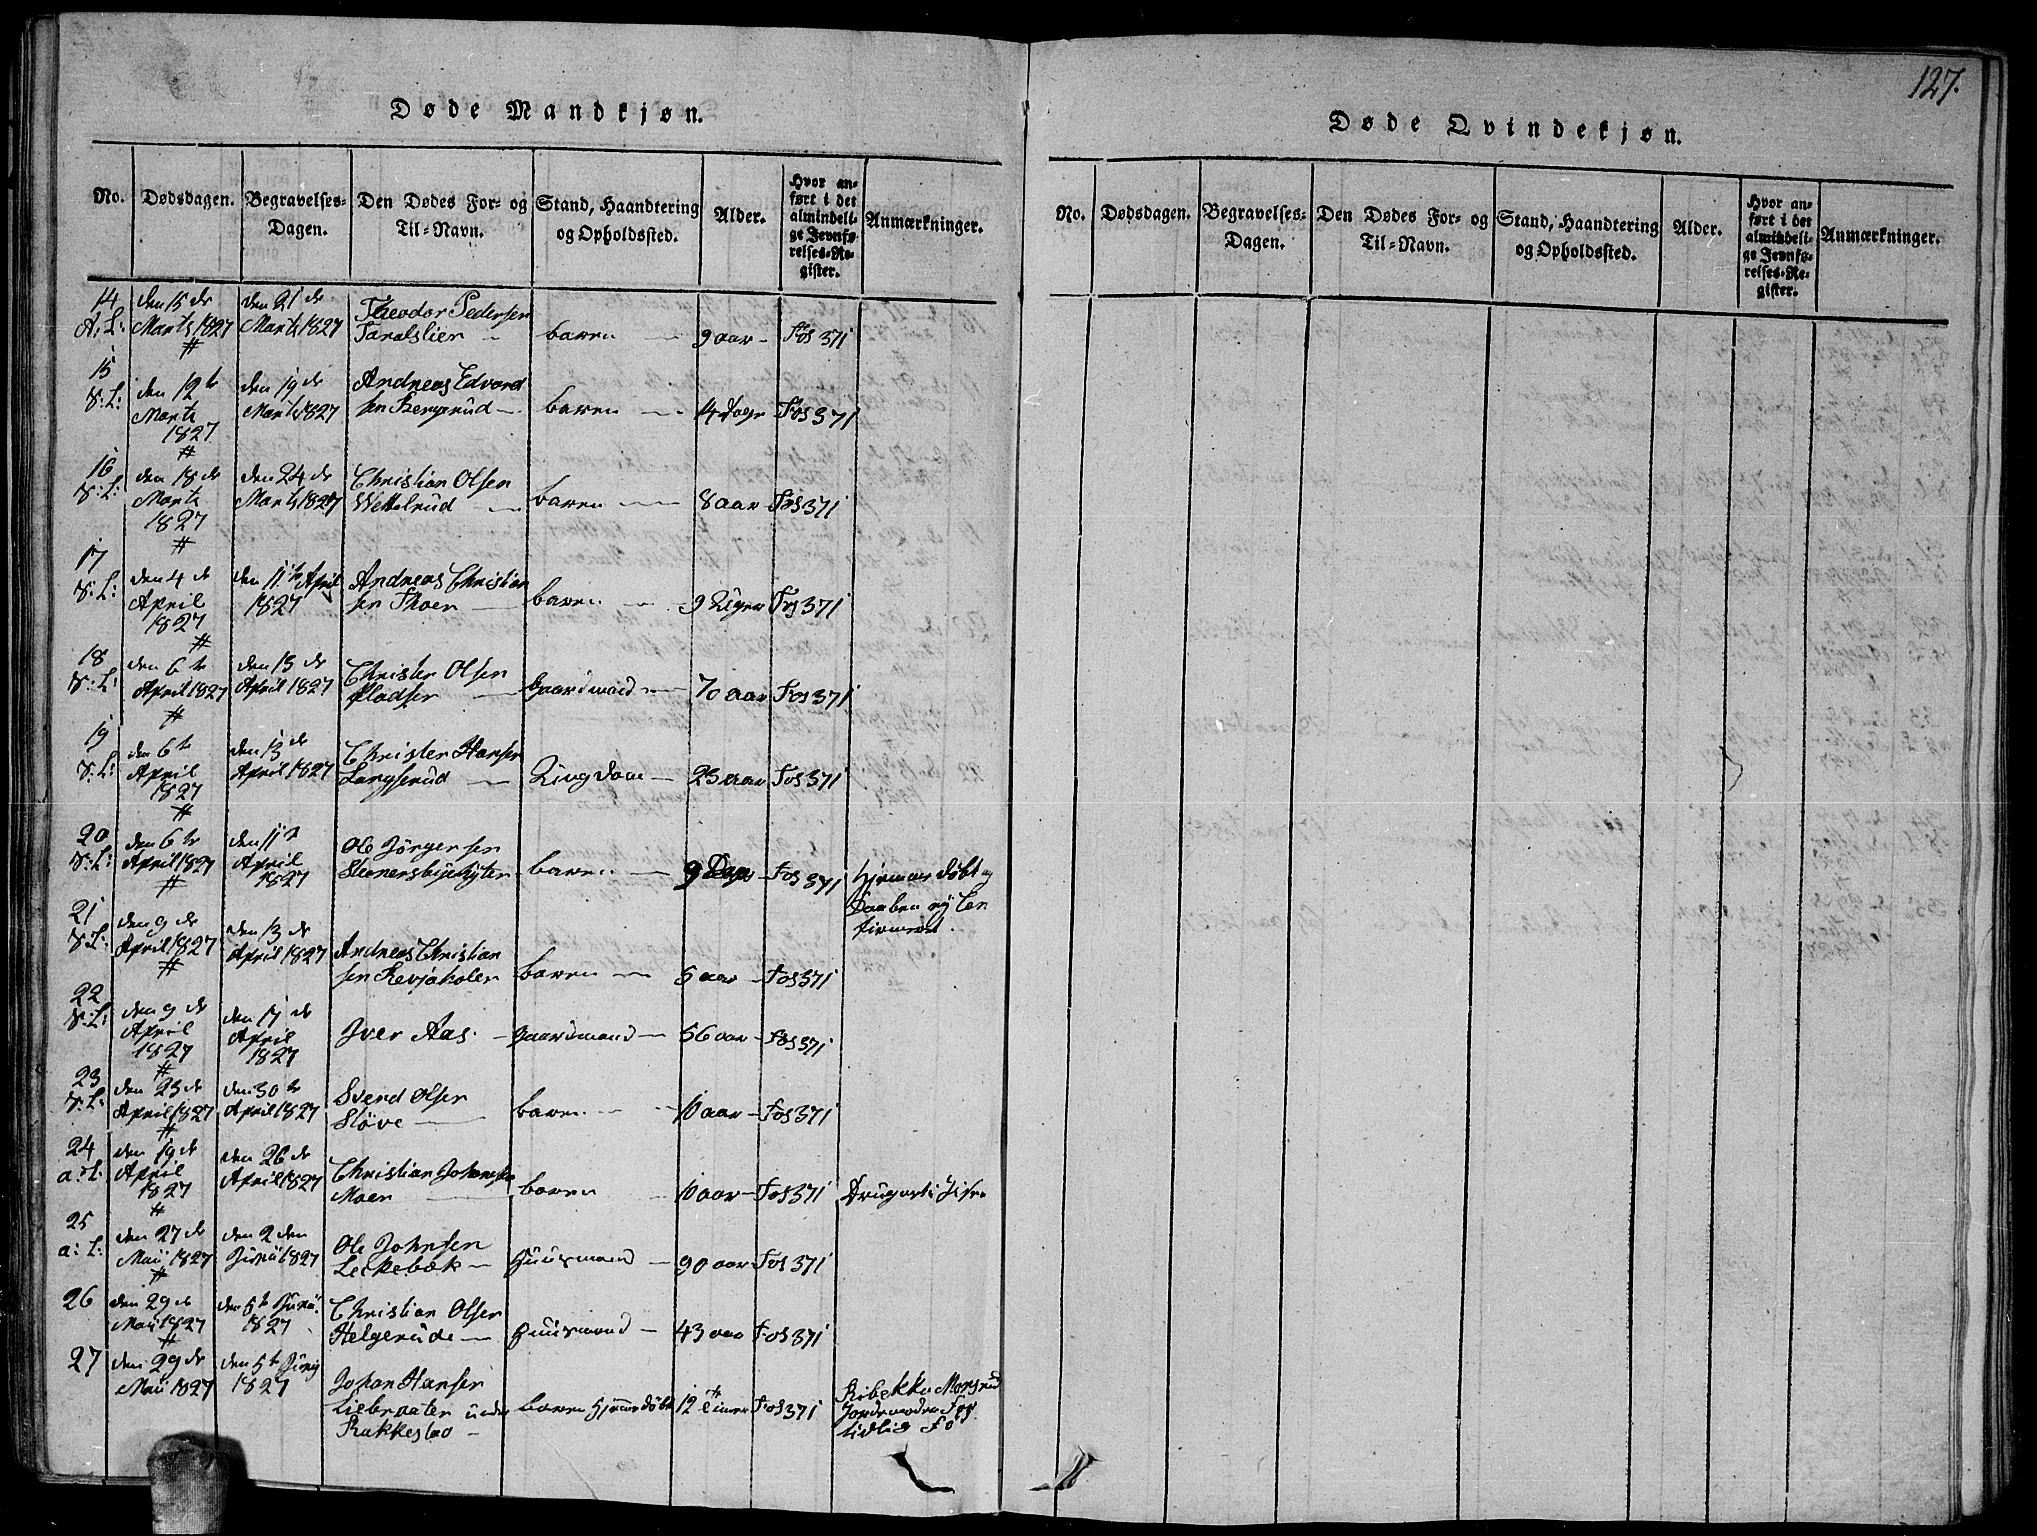 127.
Døde Mandkjøn.
No. Dødsdagen. Begravelses-Dagen. Den Dødes For- og Til-Navn. Stand, Haandtering og Opholdssted. Alder. Hvor anført i det almindelige Jevnførelses-Register. Anmærkninger.
14 den 15 de den 21 de Theodor Pedersen
A: L: Marts 1827 Marts 1827 barn 9 aar Fos 371
#
15 den 12 te den 19 de Andreas Edvard
S: L: Marts Marts 1827 sen barn 14 Fos 371
1827
#
16 den 18 de den 24 de Christian Olsen
S: L: Marts Marts 1827 Wettelrud barn 8 aar Fos 371
1827
#
17 den 4 de den 11 te April Andreas Christian
S: L: April 1827 sen barn 9 Fos 371
1827
#
18 den 6 te den 13 de Christen Olsen
S: L: April 1827 April 1827 Gaardmand 70 aar Fos 371
#
19 den 6 te den 13 de Christen Hansen
S: L: April April 1827 Langsrud 23 aar Fos 371
1827
#
20 den 6 te den 11 te Ole Jörgensen
S: L: April 1827 April barn 9 Fos 371 Hjemme döbt og
# 1827 Daaben
21 den 9 de den 13 de Andreas Christian
S: L: April 1827 April 1827 sen barn 5 aar Fos 371
#
22 den 9 de den 17 de
S: L: April April Iver Aas. Gaardmand 56 aar Fos 371
1827 1827
#
23 den 23 de den 30 te Svend Olsen
S: L: April 1827 April 1827 Slöve barn 10 aar Fos 371
#
24 den 19 de den 26 de Christian Johansen
a: L: April April 1827 Moen barn 10 aar Fos 371
1827
#
25 den 27 de den 2 den Ole Johnsen
a: L: Maii 1827 Junii 1827 Leckebæk Huusmand 90 aar Fos 371
#
26 den 29 de den 5 te Junii Christian Olsen
Maii 1827 1827 Helgerude Huusmand 43 aar Fos 371
#
27 den 29 de den 5 te Junii Johan Hansen
Maii 1827 1827 Liebraaten under barn Hjemmedöbt 12 Timer Fos 371
Rakkestad
Døde Qvindekjøn.
No. Dødsdagen. Begravelses-Dagen. Den Dødes For- og Til-Navn. Stand, Haandtering og Opholdssted. Alder. Hvor anført i det almindelige Jevnførelses-Register. Anmærkninger.